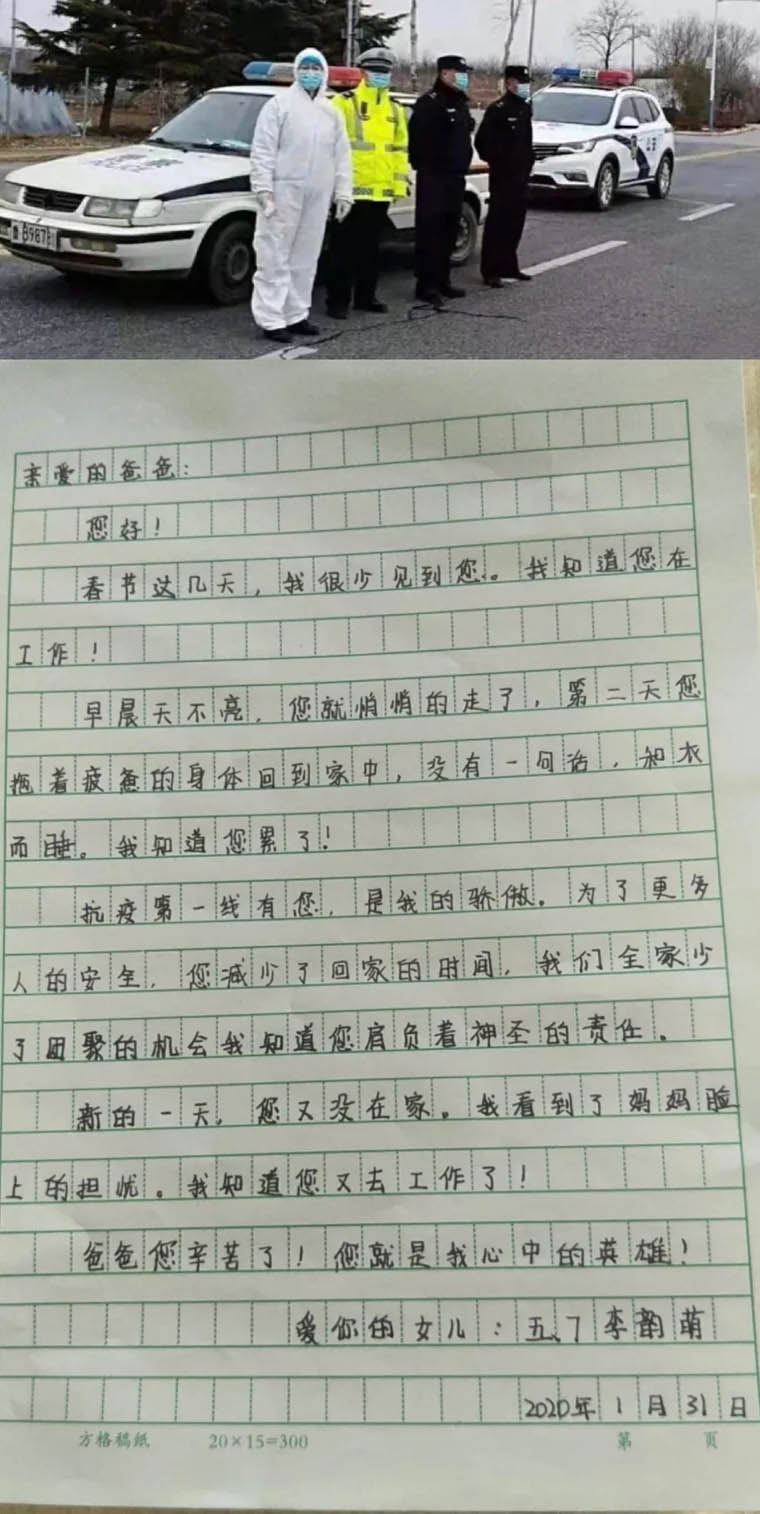 B987
亲爱的爸爸:
您好!
春节这几天,我很少见到您。我知道您在
工作!
早晨天不亮,您就悄悄的走了,第二天您
拖着疲惫的身体回到家中,没有一句话,和衣
而睡。我知道您累了!
抗疫第一线有您,是我的骄傲。为了更多
人的安全,您减少了回家的时间,我们全家少
了团聚的机会我知道您肩负着神圣的责任。
新的一天,您又没在家。我看到了妈妈脸
上的担忧。我知道您又去工作了!
爸爸您辛苦了!您就是我心中的英雄!
爱你的女儿:五、7李韵萌
2020年1月31日
方格稿纸 20×15=300 第 页